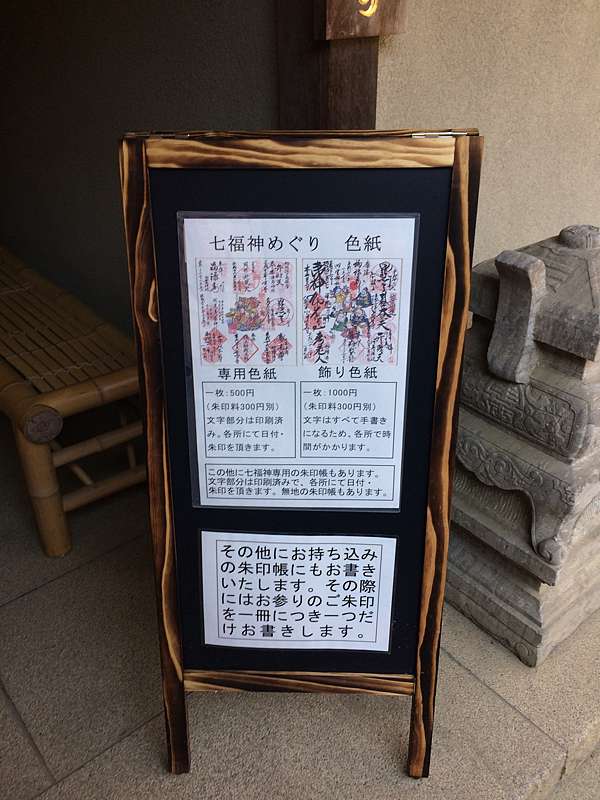 七福神めぐり　色紙
専用色紙
一枚：500円
（朱印料300円別）
文字部分は印刷済
み。各所にて日付・
朱印を頂きます。
飾り色紙
一枚：1000円
（朱印料300円別）
文字はすべて手書き
になるため、各所で時
間がかかります。
この他に七福神専用の朱印帳もあります。
文字部分は印刷済みで、各所にて日付・
朱印を頂きます。無地の朱印帳もあります。
その他にお持ち込み
の朱印帳にもお書き
いたします。その際
にはお参りのご朱印
を一冊につき一つだ
けお書きします。